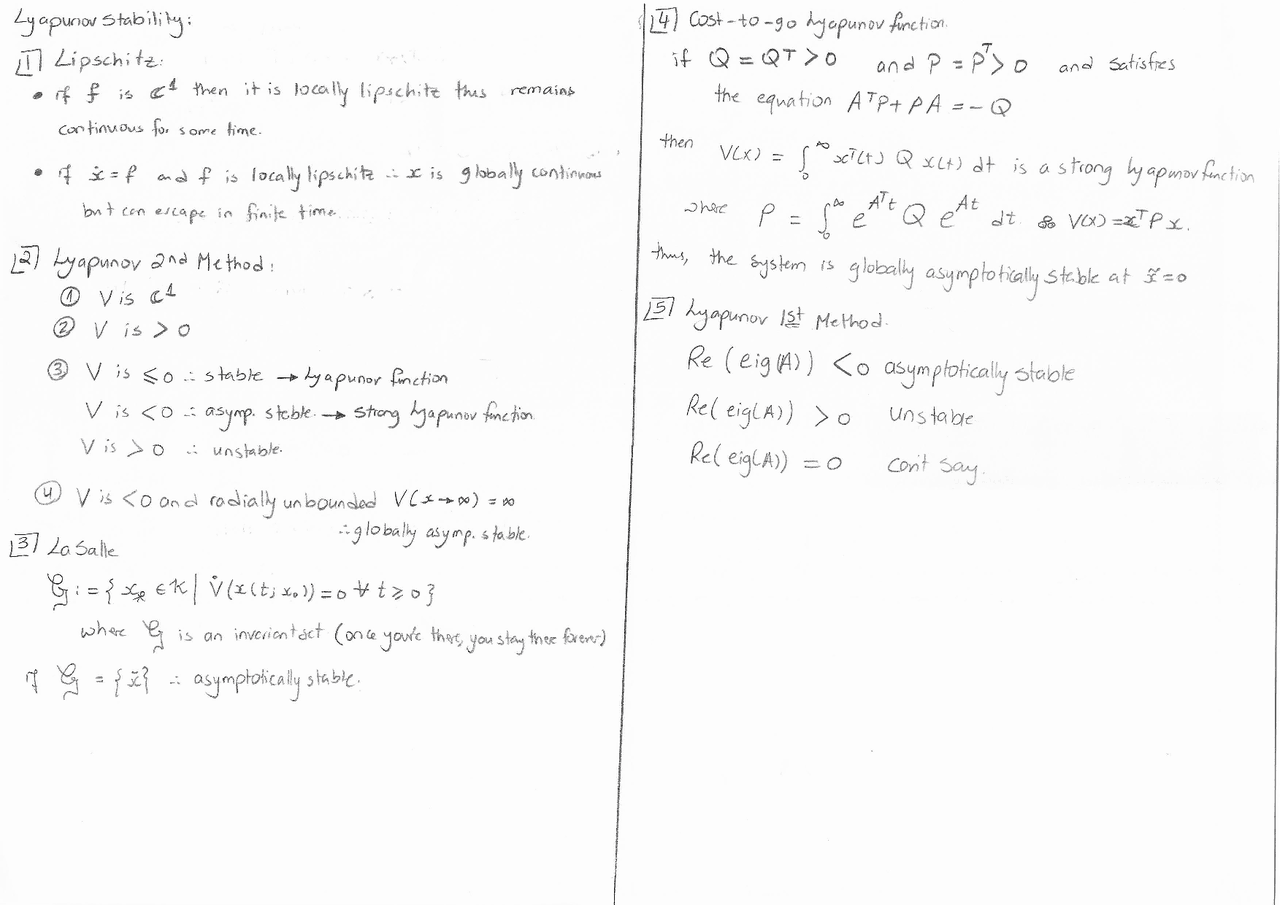 Lyapunov Stability:
1 Lipschitz:
• if f is C¹ then it is locally lipschitz thus remains
continuous for some time.
• if ẋ = f and f is locally lipschitz ∴ x is globally continuous
but can escape in finite time.
2 Lyapunov 2nd Method:
① V is C¹
② V is > 0
③ V is ⩽ 0 ∴ stable → Lyapunov function
V is < 0 ∴ asymp. stable. → strong Lyapunov function
V is > 0 ∴ unstable.
④ V is < 0 and radially unbounded V(x→∞) = ∞
∴ globally asymp. stable.
3 LaSalle
G := { x₀ ∈ K | V̇(x(t; x₀)) = 0 ∀ t ⩾ 0 }
where G is an invariant set (once you're there, you stay there forever)
if G = {x̄} ∴ asymptotically stable.
4 Cost-to-go Lyapunov function.
if Q = Qᵀ > 0 and P = Pᵀ > 0 and satisfies
the equation AᵀP + PA = -Q
then V(x) = ∫₀^∞ xᵀ(t) Q x(t) dt is a strong Lyapunov function
where P = ∫₀^∞ e^{Aᵀt} Q e^{At} dt & V(x) = xᵀPx.
thus, the system is globally asymptotically stable at x̄ = 0
5 Lyapunov 1st Method.
Re(eig(A)) < 0 asymptotically stable
Re(eig(A)) > 0 Unstable
Re(eig(A)) = 0 can't say.